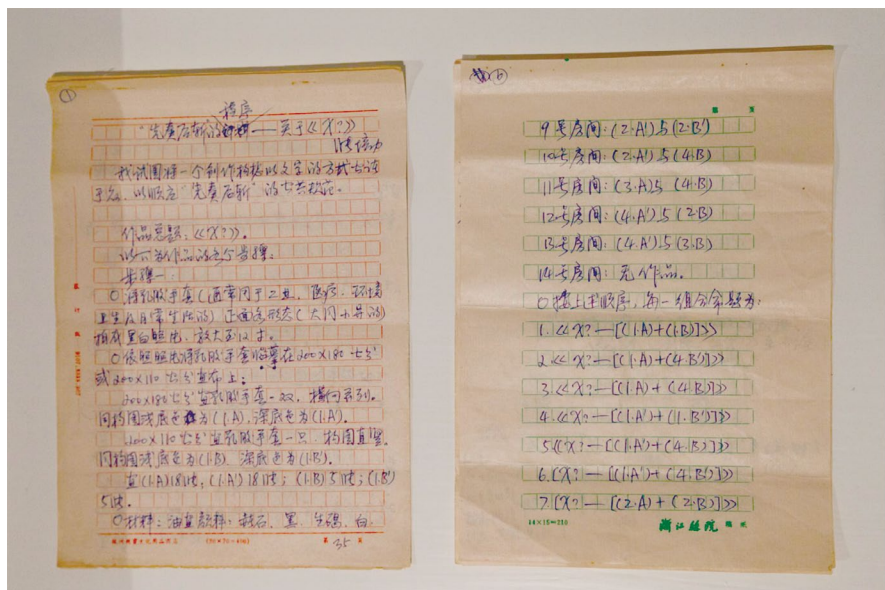 ①
程序
"先奏后斩"的——关于《X?》
张培力
我试图将一个创作构想以文字的方式告诸
于众,以顺应"先奏后斩"的公共秩序。
作品总题:《X?》。
以下为作品的几个步骤。
步骤一.
○ 清乳胶手套(通常用于工业、医疗、环境
卫生及日常生活的)正面形态(大同小异的)
拍成黑白照片,放大至12寸。
○依照照片将乳胶手套临摹在200×180公分
或200×110公分画布上;
200×180公分画乳胶手套一双,横向并列。
同构图浅底色为(1.A),深底色为(1.A')。
200×110公分画乳胶手套一只,构图直竖,
同构图浅底色为(1.B)、深底色为(1.B')。
画(1.A)18张;(1.A')18张;(1.B)5张;(1.B')
5张。
○材料:油画颜料:钴、黑、生褐、白
(20×20=400)
第 35 页
⑥
第 页
9号房间:(2.A')与(2.B')
10号房间:(2.A')与(4.B)
11号房间:(3.A)与(4.B)
12号房间:(4.A')与(2.B)
13号房间:(4.A')与(3.B)
14号房间:无作品。
○按上述顺序,每一组分命题为:
1.《X?—[(1.A)+(1.B)]》
2《X?—[(1.A)+(4.B')]》
3《X?—[(1.A)+(4.B)]》
4.《X?—[(1.A')+(1.B')]》
5《X?—[(1.A')+(4.B)]》
6.[X?—[(1.A')+(4.B')]》
7.[X?—[(2.A)+(2.B)]》
14×15=210
浙江丝院